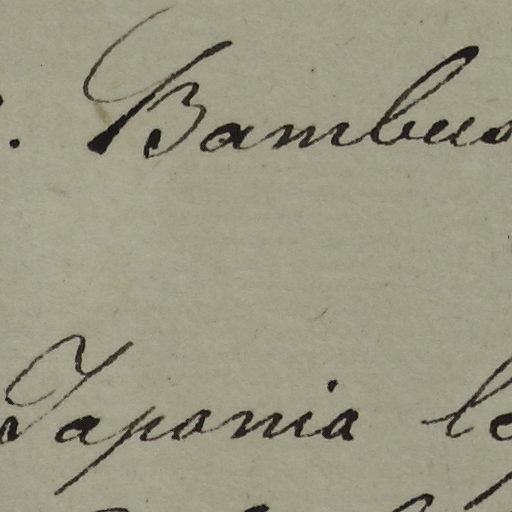 . Bambus
Japonia